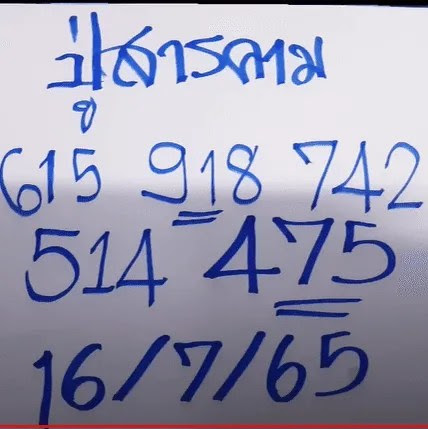 ปู่สารคาม
615 918 742
514 475
16/7/65